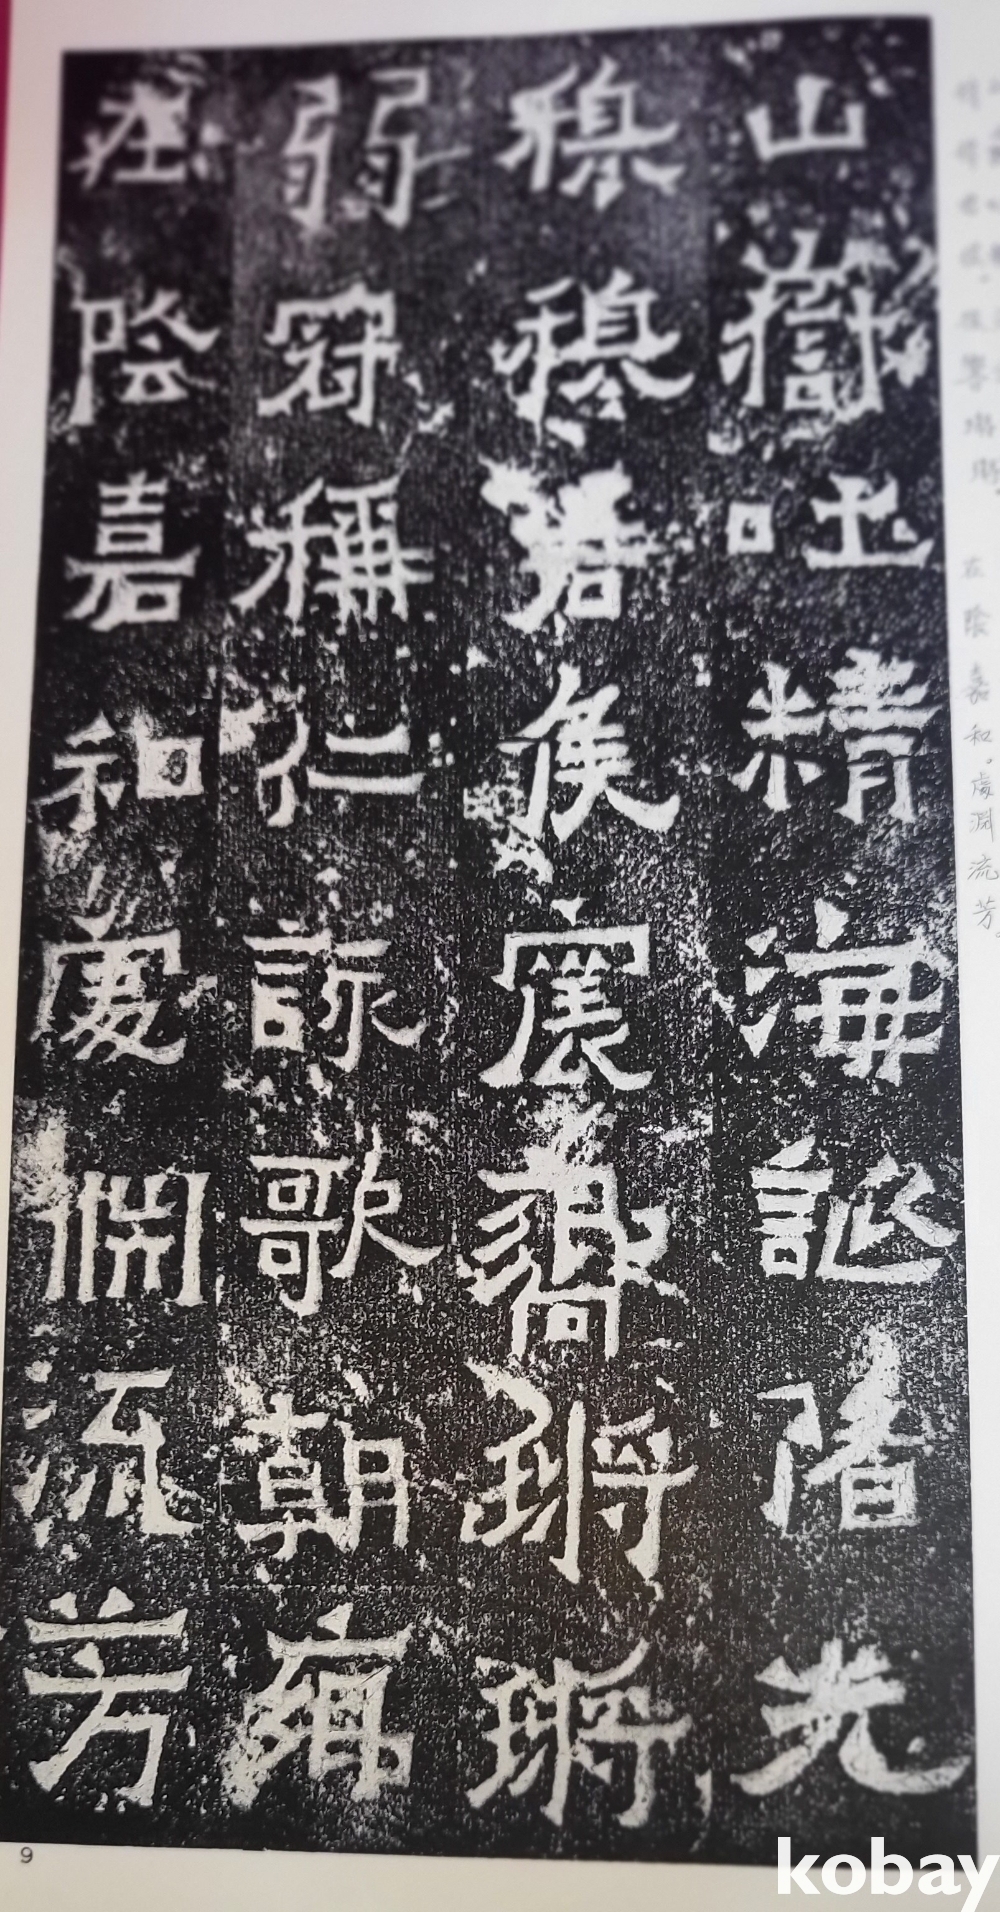 在陰嘉和。處淵流芳。
山嶽吐精海誕陼光
穆穆君侯震響鏘鏘
弱冠稱仁詠歌朝鄉
在陰嘉和處淵流芳
9
kobay